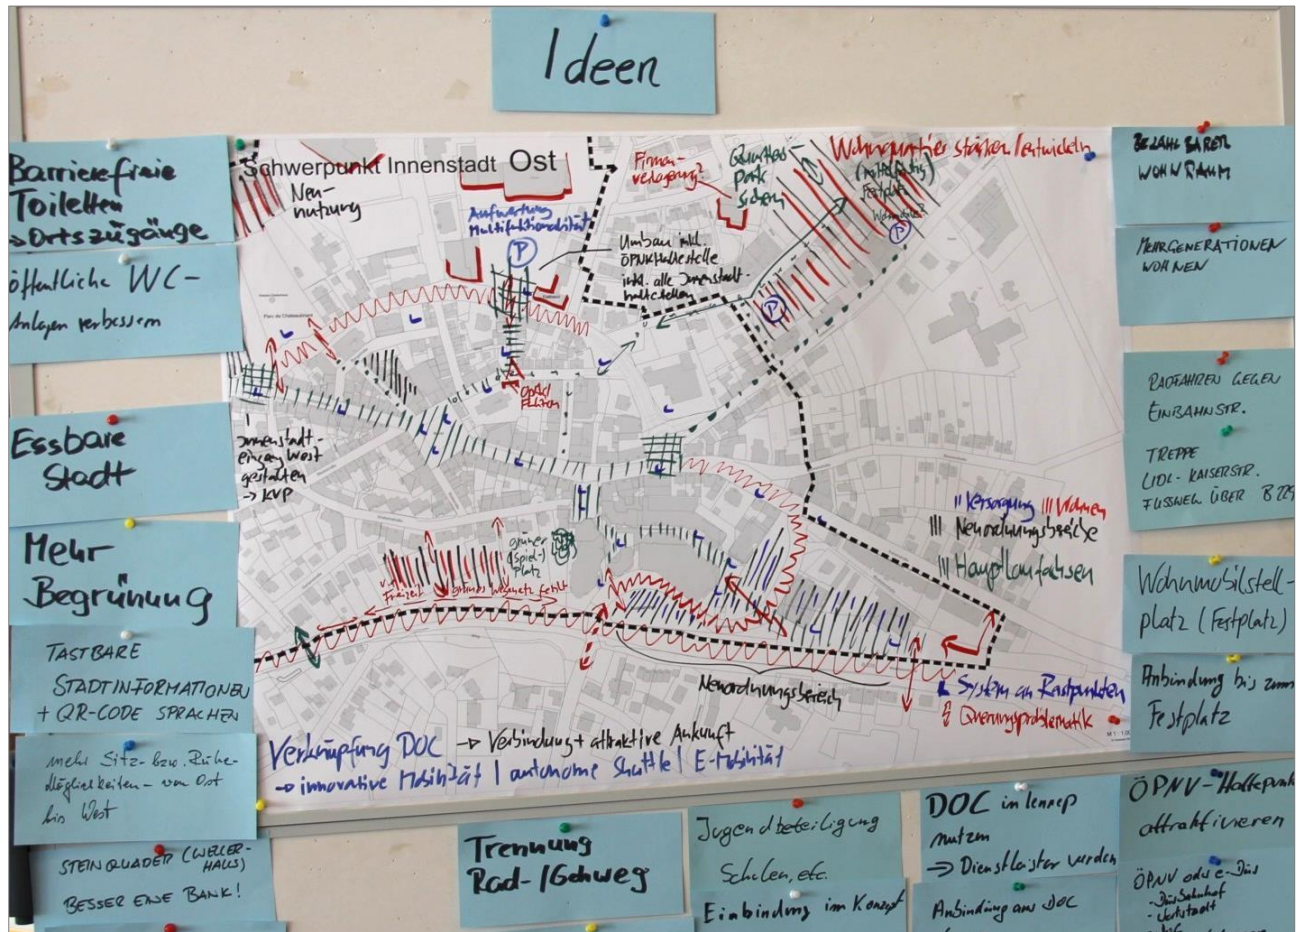 Ideen
Barrierefreie
Toiletten
→Ortszugänge
öffentliche WC-
Anlagen verbessern
Essbare
Stadt
Mehr
Begrünung
TASTBARE
STADTINFORMATIONEN
+ QR-CODE SPRACHEN
mehr Sitz- bzw. Ruhe-
möglichkeiten - von Ost
bis West
STEINQUADER (WELLER-
HAUS)
BESSER EINE BANK!
Schwerpunkt Innenstadt Ost
Neu-
nutzung
Aufwertung
Multifunktionalität
P
Firmen-
verlagerung?
Quartiers-
park
sichern
Wohnquartier stärken/entwickeln
Festplatz
P
P
Umbau inkl.
ÖPNV Haltestelle
inkl. alle Innenstadt-
haltestellen
Innenstadt-
eingang West
gestalten
→ KVP
grüner
(Spiel-)
Platz
Freizeit
grünes Wegenetz fehlt
|| Versorgung ||| Wohnen
||| Neuordnungsbereiche
||| Hauptlaufachsen
Neuordnungsbereich
System an Rastpunkten
Querungsproblematik
Verknüpfung DOC → Verbindung + attraktive Ankunft
→ innovative Mobilität | autonome Shuttle | E-Mobilität
BEZAHLBAREN
WOHNRAUM
MEHRGENERATIONEN
WOHNEN
RADFAHREN GEGEN
EINBAHNSTR.
TREPPE
LIDL-KAISERSTR.
FUSSWEG ÜBER B 229
Wohnmobilstell-
platz (Festplatz)
Anbindung bis zum
Festplatz
Trennung
Rad-/Gehweg
Jugendbeteiligung
Schulen, etc.
Einbindung im Konzept
DOC in Lennep
nutzen
→ Dienstleister werden
Anbindung ans DOC
ÖPNV-Haltepunkt
attraktivieren
ÖPNV oder e-Bus
- Busbahnhof